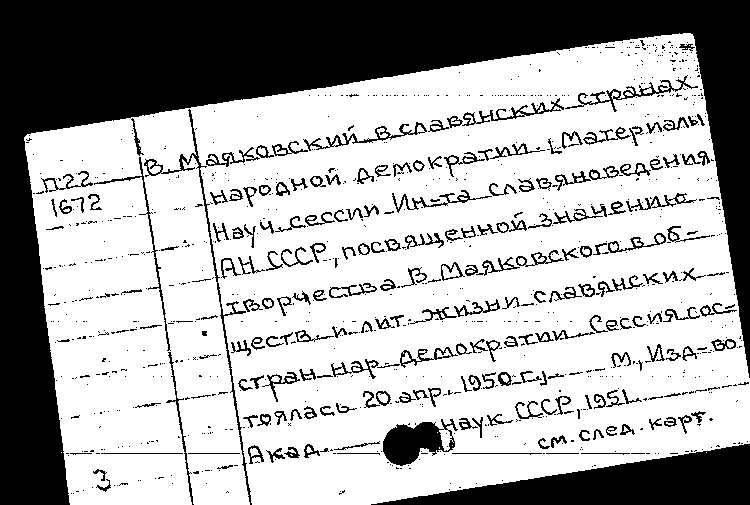 П22
1672
В. Маяковский в славянских странах
народной демократии. [Материалы
Науч. сессии Ин-та славяноведения
АН СССР, посвященной значению
творчества В Маяковского в об-
ществ. и лит. жизни славянских
стран нар. демократии Сессия сос-
тоялась 20 апр. 1950 г.]. М., Изд-во
Акад. Наук СССР, 1951.
см. след. карт.
3